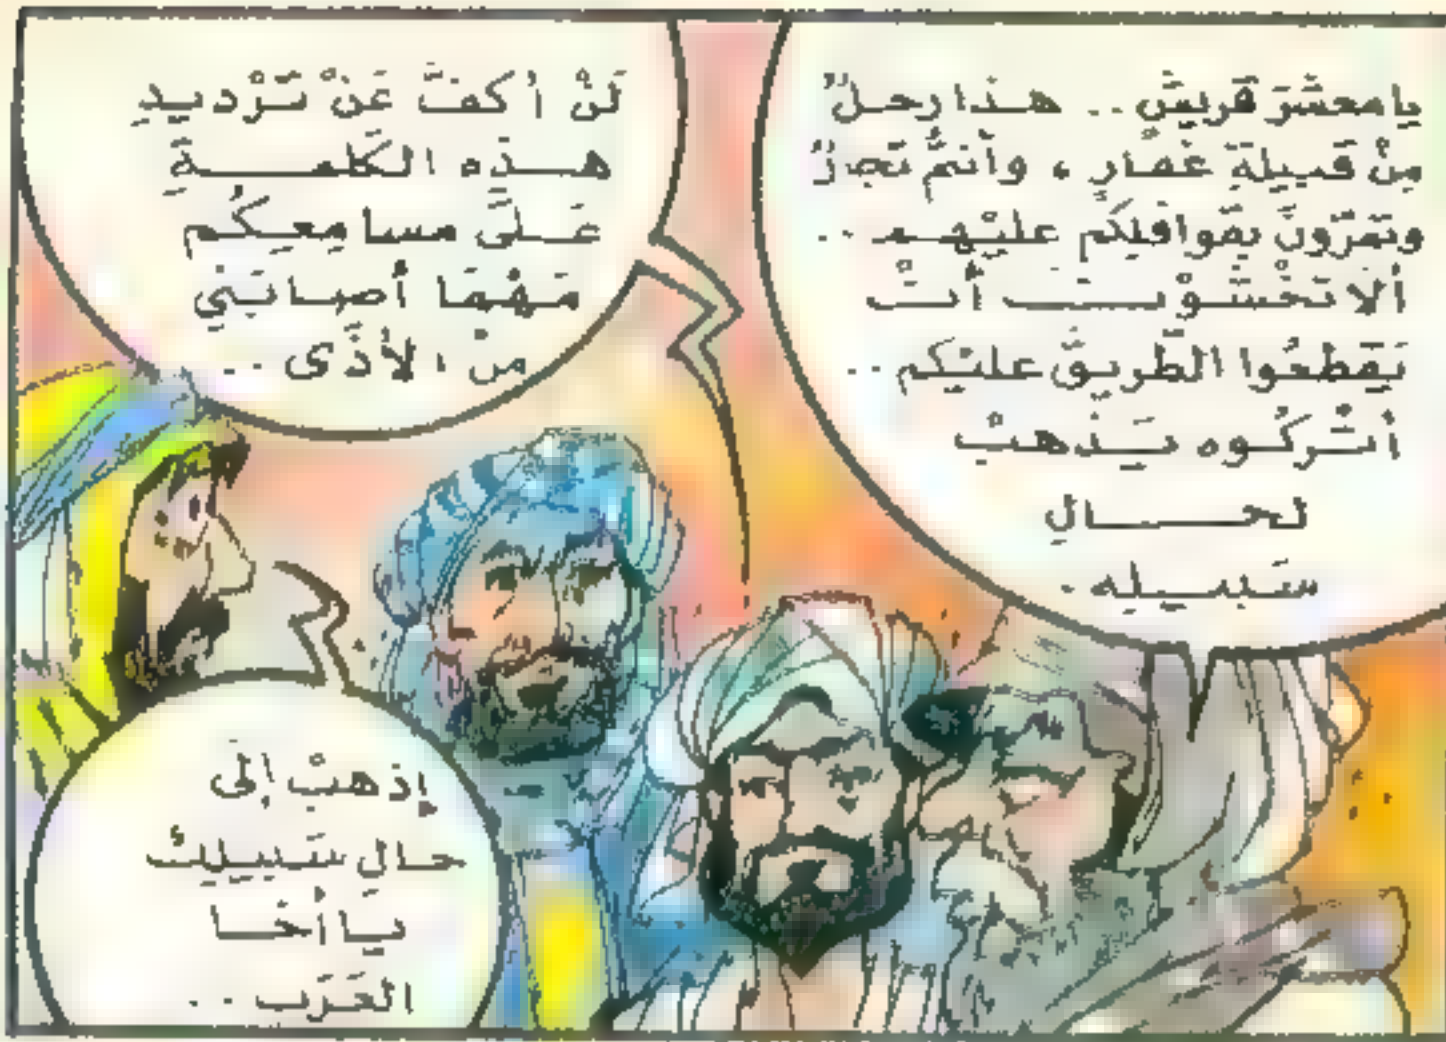 يا معشَرَ قريشٍ .. هـذا رجـلٌ
مِنْ قَبيلةِ غفـارٍ ، وأنتمْ تجارٌ
وتمرّونَ بقوافلِكم عليْهـم ..
ألا تخْشَـوْنـــَ أنْ
يَقْطعُوا الطّريقَ عليْكم ..
أتْركُوه يَـذْهبْ
لحـــالِ
سَبـيـلِه .
لَنْ أكفَّ عَنْ تَرْديدِ
هـذِه الكَلمـــةِ
عَـلَى مسامِعِكُم
مَهْمَا أصـابَنِي
مِنْ الأذَى ..
إذهبْ إلَى
حالِ سَبيلِكْ
يـا أخـا
العَرَب ..